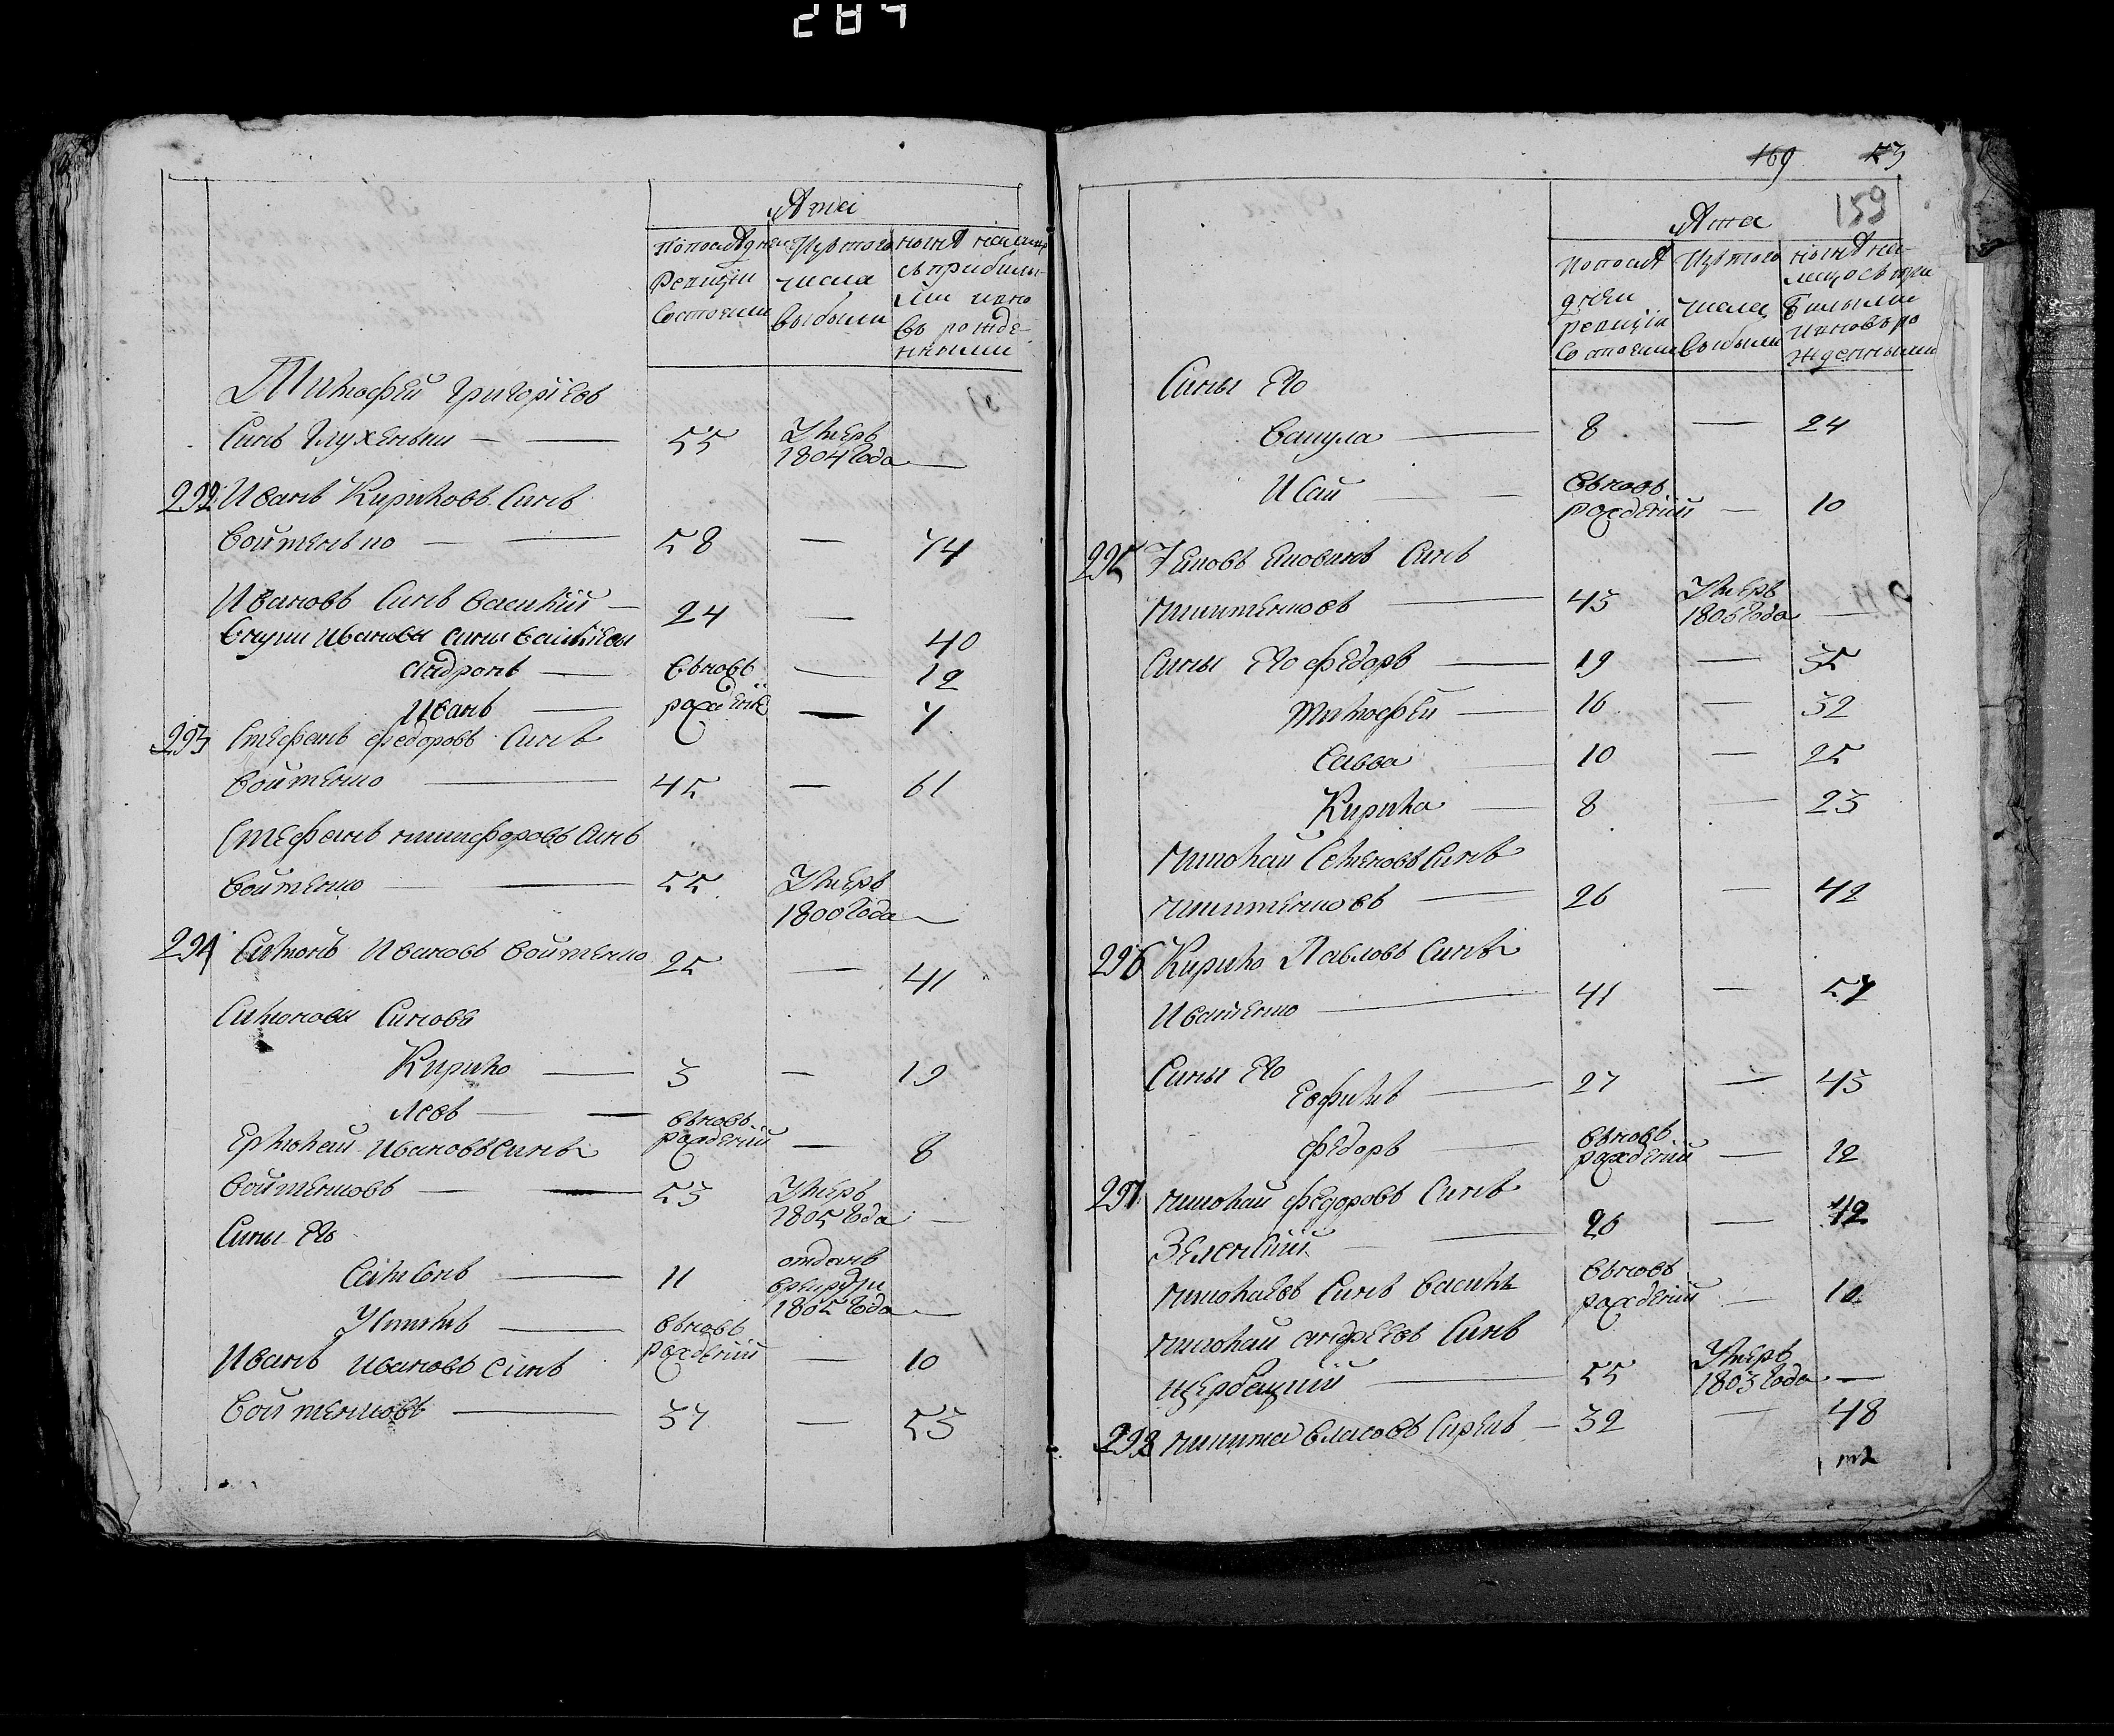 287
Лета
По последней ревизии состояли
Изъ того числа выбыли
Ныне налицо съ прибылыми и вновь рожденными
Тимофей Григорiевъ
Синъ Глухенький — 55 Умеръ 1804 Года —
292 Иванъ Кириловъ Синъ
Войтенко — 58 — 74
Ивановъ Синъ Василiй — 24 — 40
Внуки Ивановы сини Василiевы
Андронъ — вьновь рожденiе — 12
Иванъ — 7
293 Стефанъ Федоровъ Синъ
Войтенко — 45 — 61
Стефанъ Никифоровъ Синъ
Войтенко — 55 Умеръ 1800 Года —
294 Симонъ Ивановъ Войтенко 25 — 41
Симоновы Синовя
Кирило — 3 — 19
Левъ — вьновь рожденiй — 8
Ермолай Ивановъ Синъ
Войтенковъ — 53 Умеръ 1805 Года —
Сины Его
Самсонъ — 11 отданъ врекруты 1805 Года —
Якимъ — вьновь рожденiй — 10
Иванъ Ивановъ Синъ
Войтенковъ — 37 — 53
169 153
159
Лета
По последней ревизiи состояли
Изъ того числа выбыли
Ныне налицо съ прибылыми и вновь рожденными
Сины Его
Вакула — 8 — 24
Исай — вьновь рожденiй — 10
295 Яковъ
Синъ
Никитенковъ — 43 Умеръ 1806 Года —
Сины Его Федоръ — 19 — 35
Тимофей — 16 — 32
Савва — 10 — 25
Кирила — 8 — 23
Николай Семеновъ Синъ
Никитенковъ — 26 — 42
296 Кирило Павловъ Синъ
Иваненко — 41 — 57
Сины Его
Евфимъ — 27 — 43
Федоръ — вьновь рожденiй — 12
297 Николай Федоровъ Синъ
Зеленскiй — 26 — 42
Николаевъ Синъ Василь вьновь рожденiй — 10
Николай Андреевъ Синъ
Щербацкий — 55 Умеръ 1803 Года —
298 Никита Власовъ Сирикъ — 32 — 48